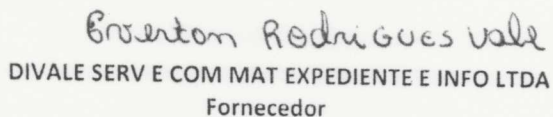 Everton Rodrigues Vale
DIVALE SERV E COM MAT EXPEDIENTE E INFO LTDA
Fornecedor